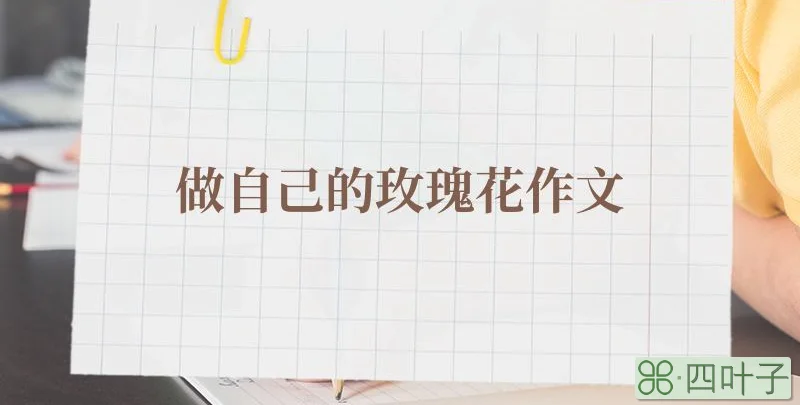 做自己的玫瑰花作文
四叶子